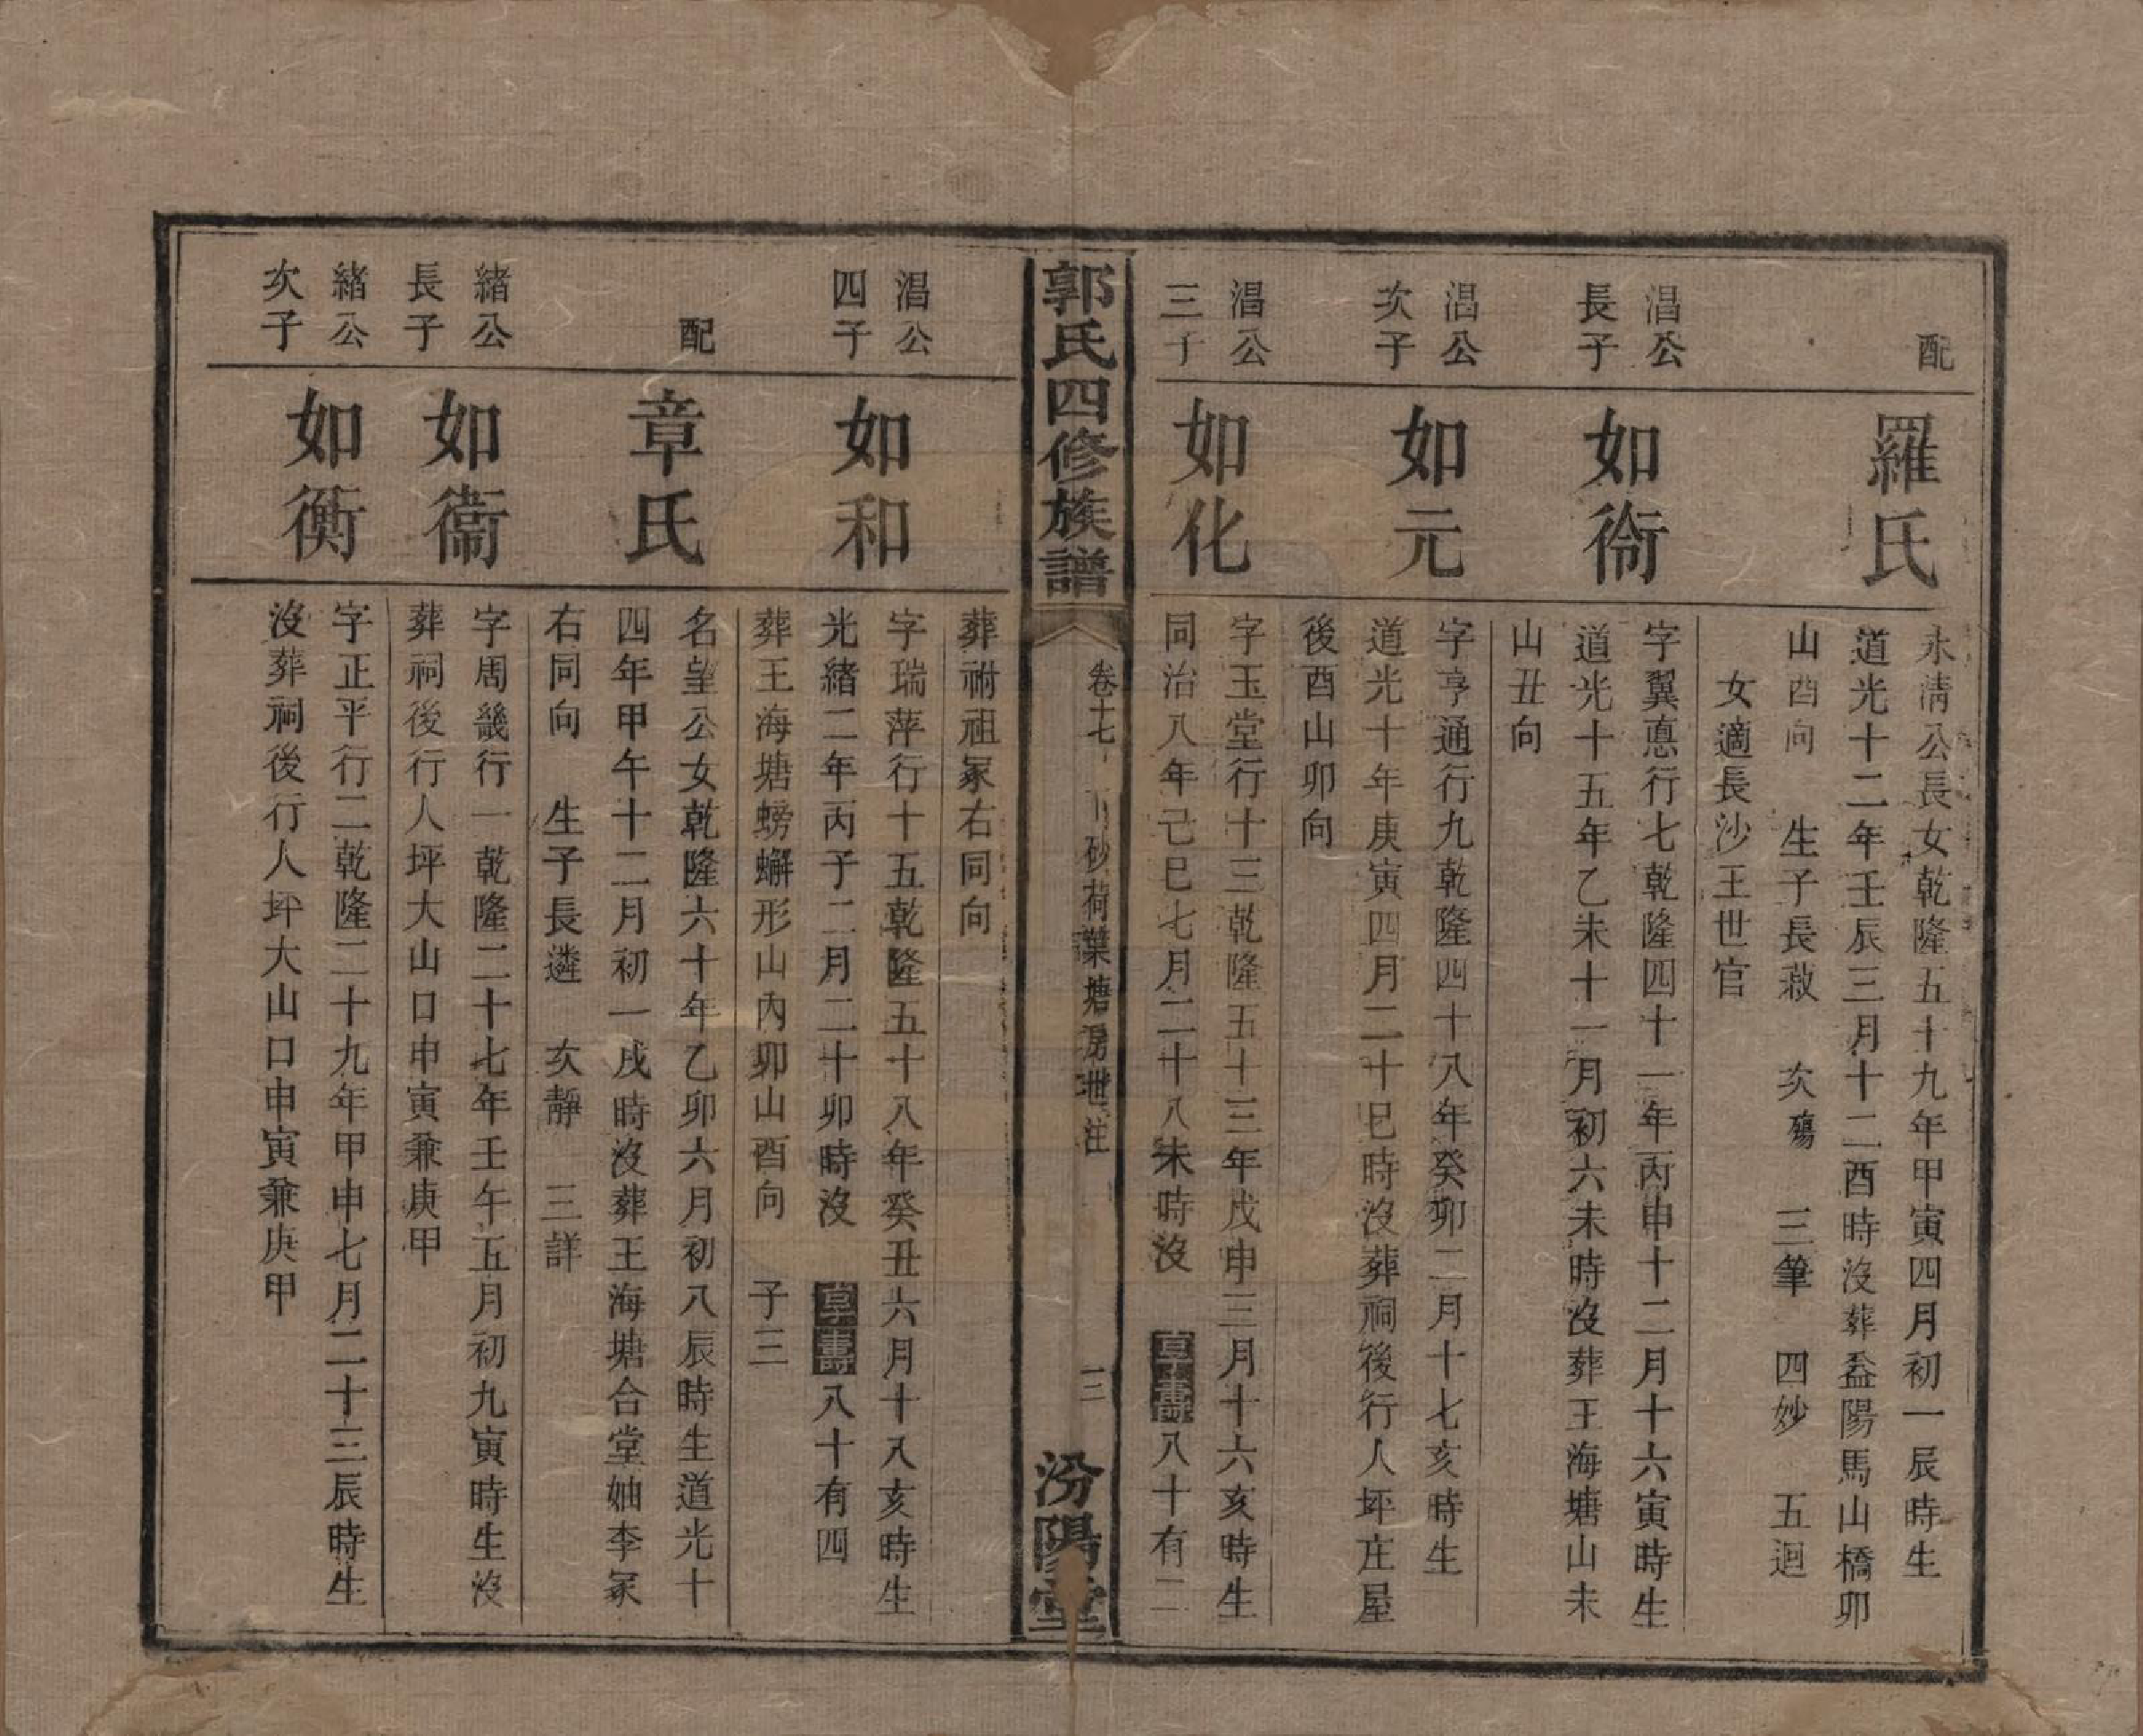 配
羅氏
永清公長女乾隆五十九年甲寅四月初一辰時生
道光十二年壬辰三月十二酉時沒葬益陽馬山橋卯
山酉向 生子長菽 次殤 三筆 四妙 五迴
女適長沙王世官
湼公
長子
如衙
字翼悳行七乾隆四十一年丙申十二月十六寅時生
道光十五年乙未十一月初六未時沒葬王海塘山未
山丑向
湼公
次子
如元
字亨通行九乾隆四十八年癸卯二月十七亥時生
道光十年庚寅四月二十巳時沒葬祠後行人坪庄屋
後酉山卯向
湼公
三子
如化
字玉堂行十三乾隆五十三年戊申三月十六亥時生
同治八年己巳七月二十八未時沒 享壽八十有二
葬祔祖冢右同向
郭氏四修族譜
卷十七 砂荷葉塘房世注
三
汾陽堂
湼公
四子
如和
字瑞萍行十五乾隆五十八年癸丑六月十八亥時生
光緒二年丙子二月二十卯時沒 享壽八十有四
葬王海塘螃蠏形山內卯山酉向 子三
配
章氏
名望公女乾隆六十年乙卯六月初八辰時生道光十
四年甲午十二月初一戌時沒葬王海塘合堂妯李冢
右同向 生子長遴 次靜 三詳
緒公
長子
如衞
字周畿行一乾隆二十七年壬午五月初九寅時生沒
葬祠後行人坪大山口申寅兼庚甲
緒公
次子
如衡
字正平行二乾隆二十九年甲申七月二十三辰時生
沒葬祠後行人坪大山口申寅兼庚甲